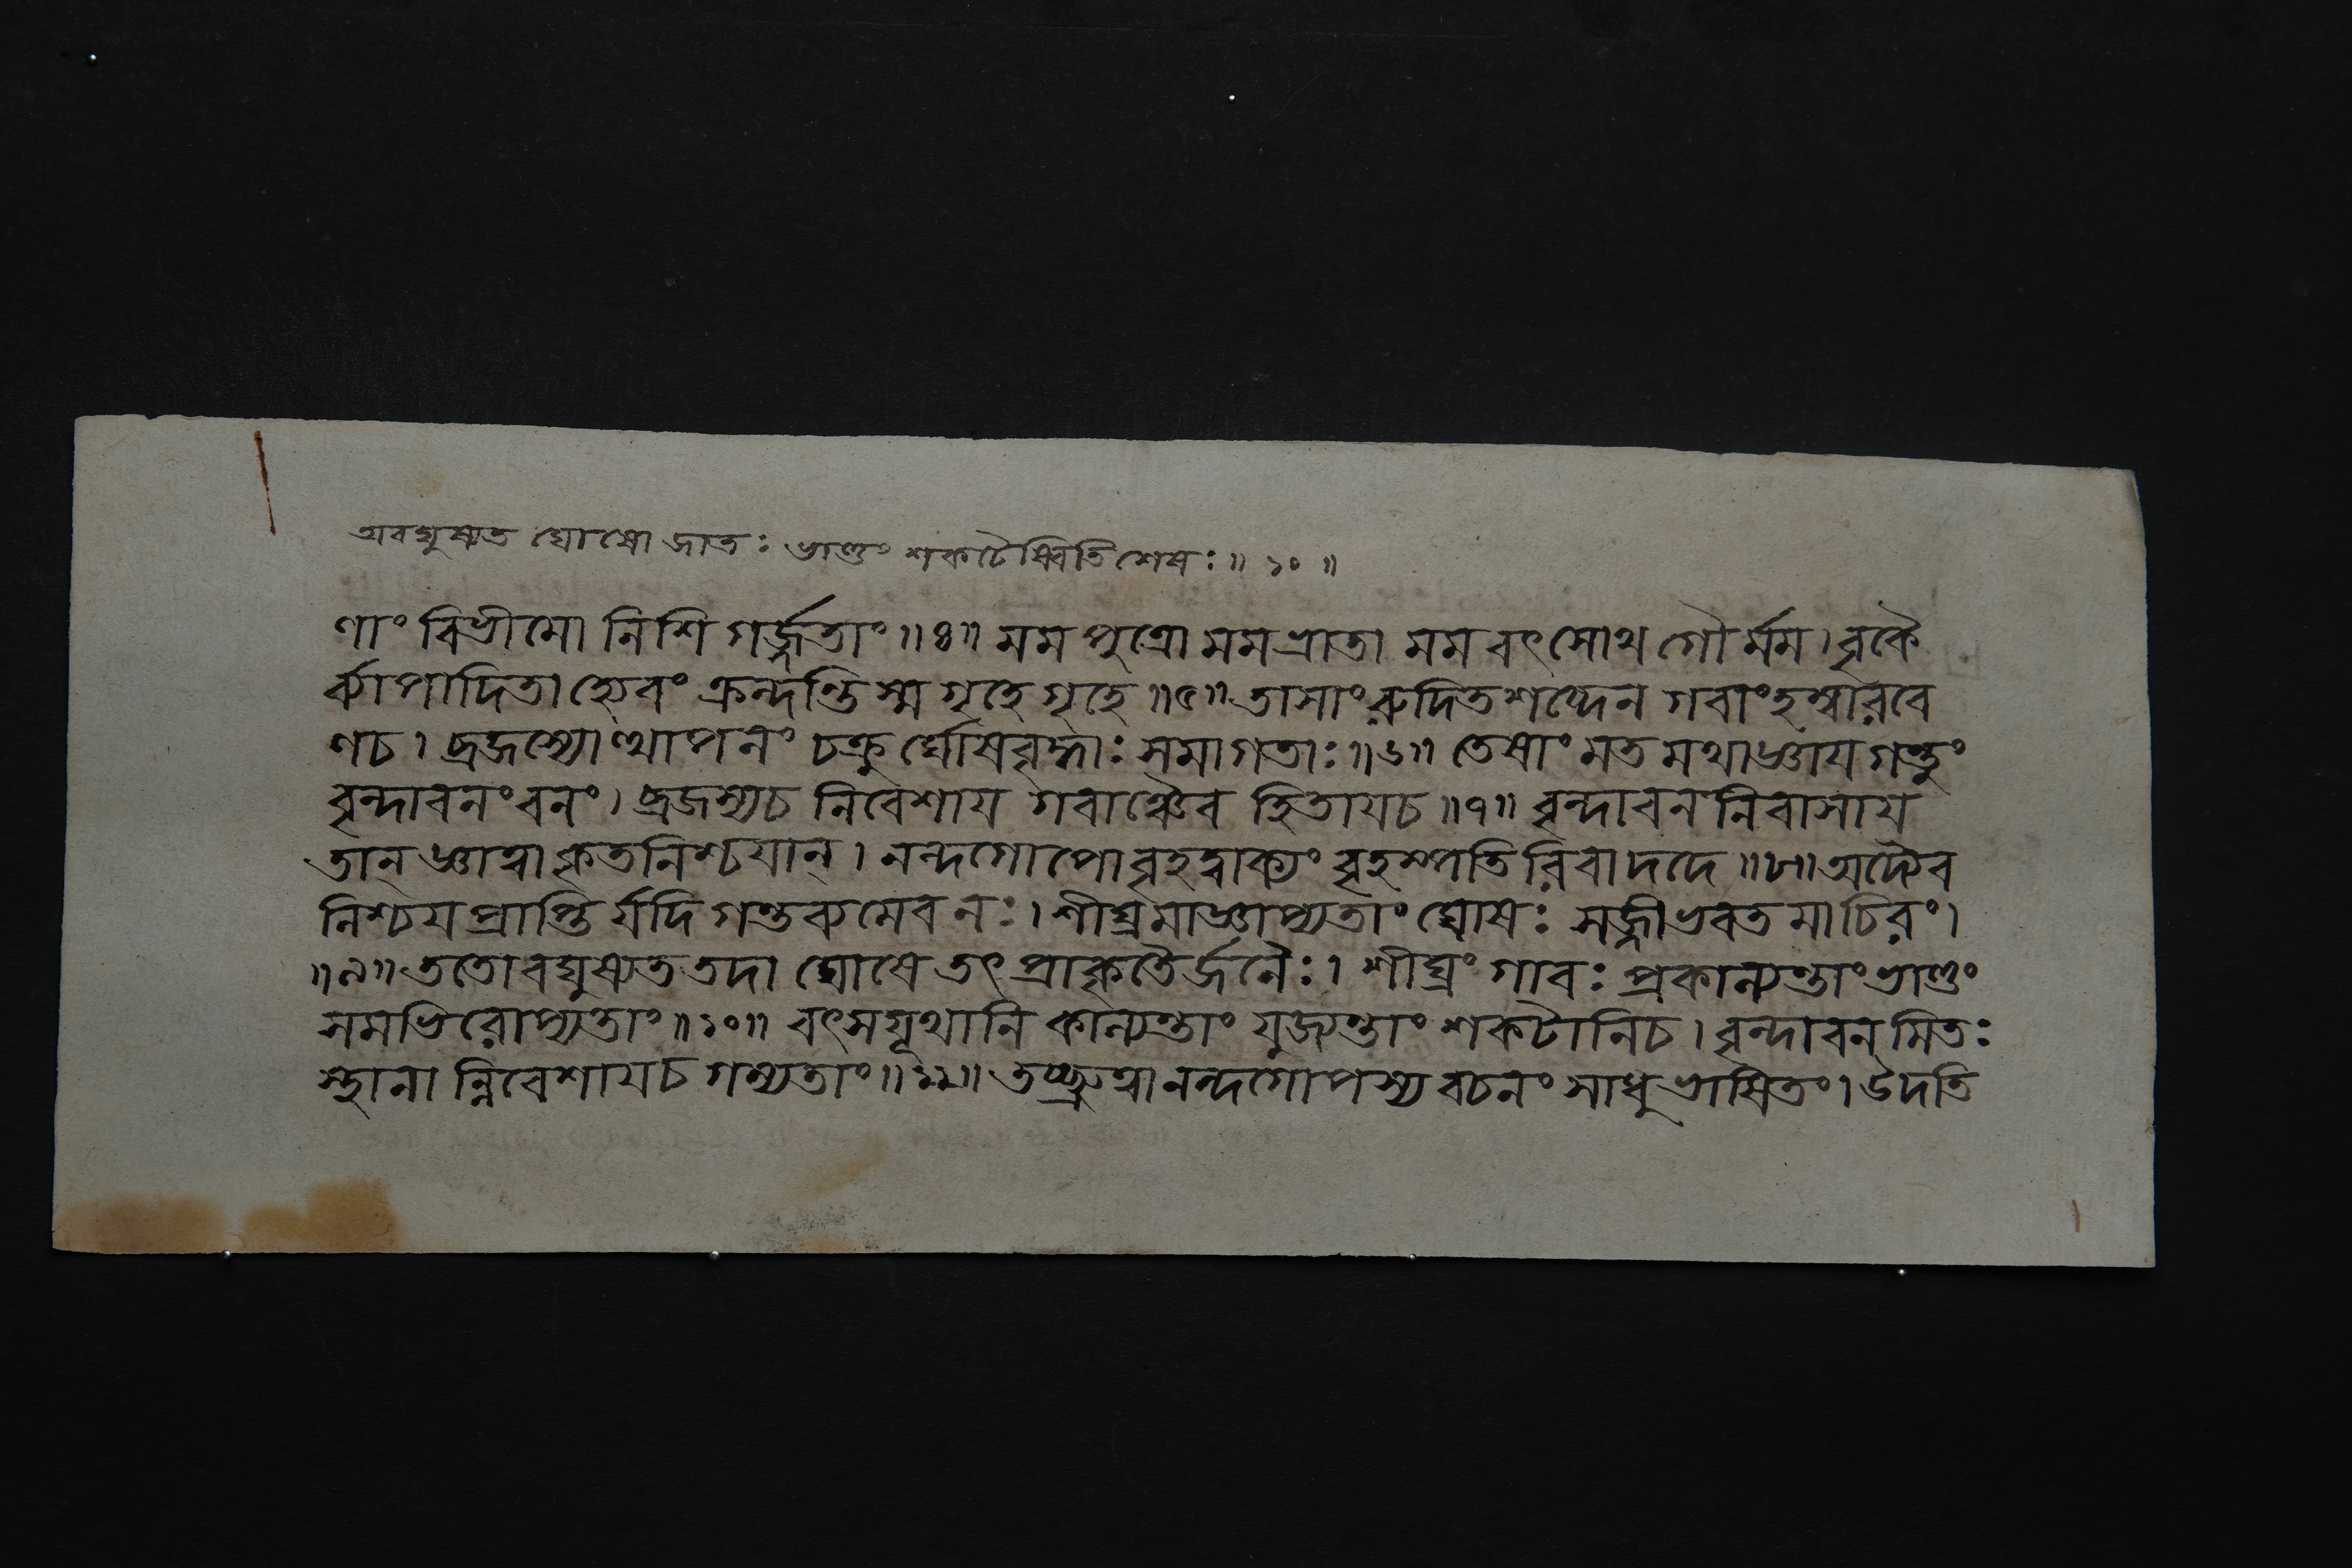 অবঘুষ্যত ঘোষো জাতঃ ভাণ্ডং শকটৈষ্বিতি শেষঃ॥১০॥
ণাং বিভীমো নিশি গর্জ্জতাং॥৪॥ মম পুত্রো মম ভ্রাতা মম বৎসোথ গৌর্ম্মম। বৃকৈ
র্ব্যাপাদিতা হ্যেবং ক্রন্দন্তি স্ম গৃহে গৃহে॥৫॥ তাসাং রুদিতশব্দেন গবাং হম্বারবে
ণচ। ব্রজস্যোত্থাপনং চক্রুর্ঘোষবৃদ্ধাঃ সমাগতাঃ॥৬॥ তেষাং মত মথাজ্ঞায গন্তুং
বৃন্দাবনং বনং। ব্রজস্যচ নিবেশায গবাঞ্চৈব হিতাযচ॥৭॥ বৃন্দাবন নিবাসায
তান্ জ্ঞাত্বা কৃতনিশ্চযান্। নন্দগোপো বৃহদ্বাক্যং বৃহস্পতি রিবাদদে॥৮॥ অদ্যৈব
নিশ্চয প্রাপ্তি র্যদি গন্তব্য মেব নঃ। শীঘ্র মাজ্ঞাপ্যতাং ঘোষঃ সজ্জীভবত মাচিরং।
॥৯॥ ততোবঘুষ্যত তদা ঘোষে তৎ প্রাকৃতৈর্জনৈঃ। শীঘ্রং গাবঃ প্রকাল্যন্তাং ভাণ্ডং
সমভিরোপ্যতাং॥১০॥ বৎসযূথানি কাল্যন্তাং যুজ্যন্তাং শকটানিচ। বৃন্দাবন মিতঃ
স্থানা ন্নিবেশাযচ গম্যতাং॥১১॥ তচ্ছ্রুত্বা নন্দগোপস্য বচনং সাধু ভাষিতং। উদতি